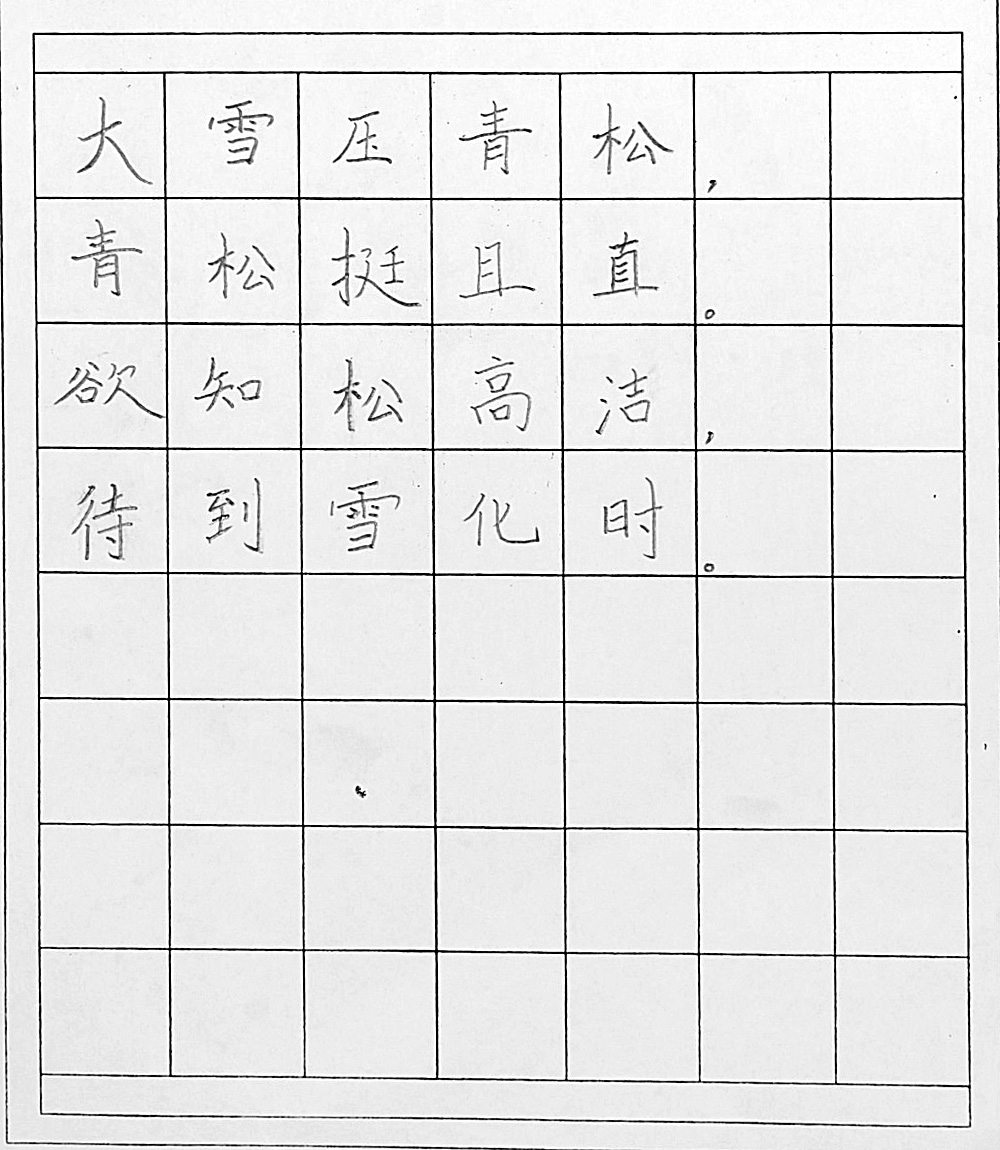 大雪压青松，
青松挺且直。
欲知松高洁，
待到雪化时。